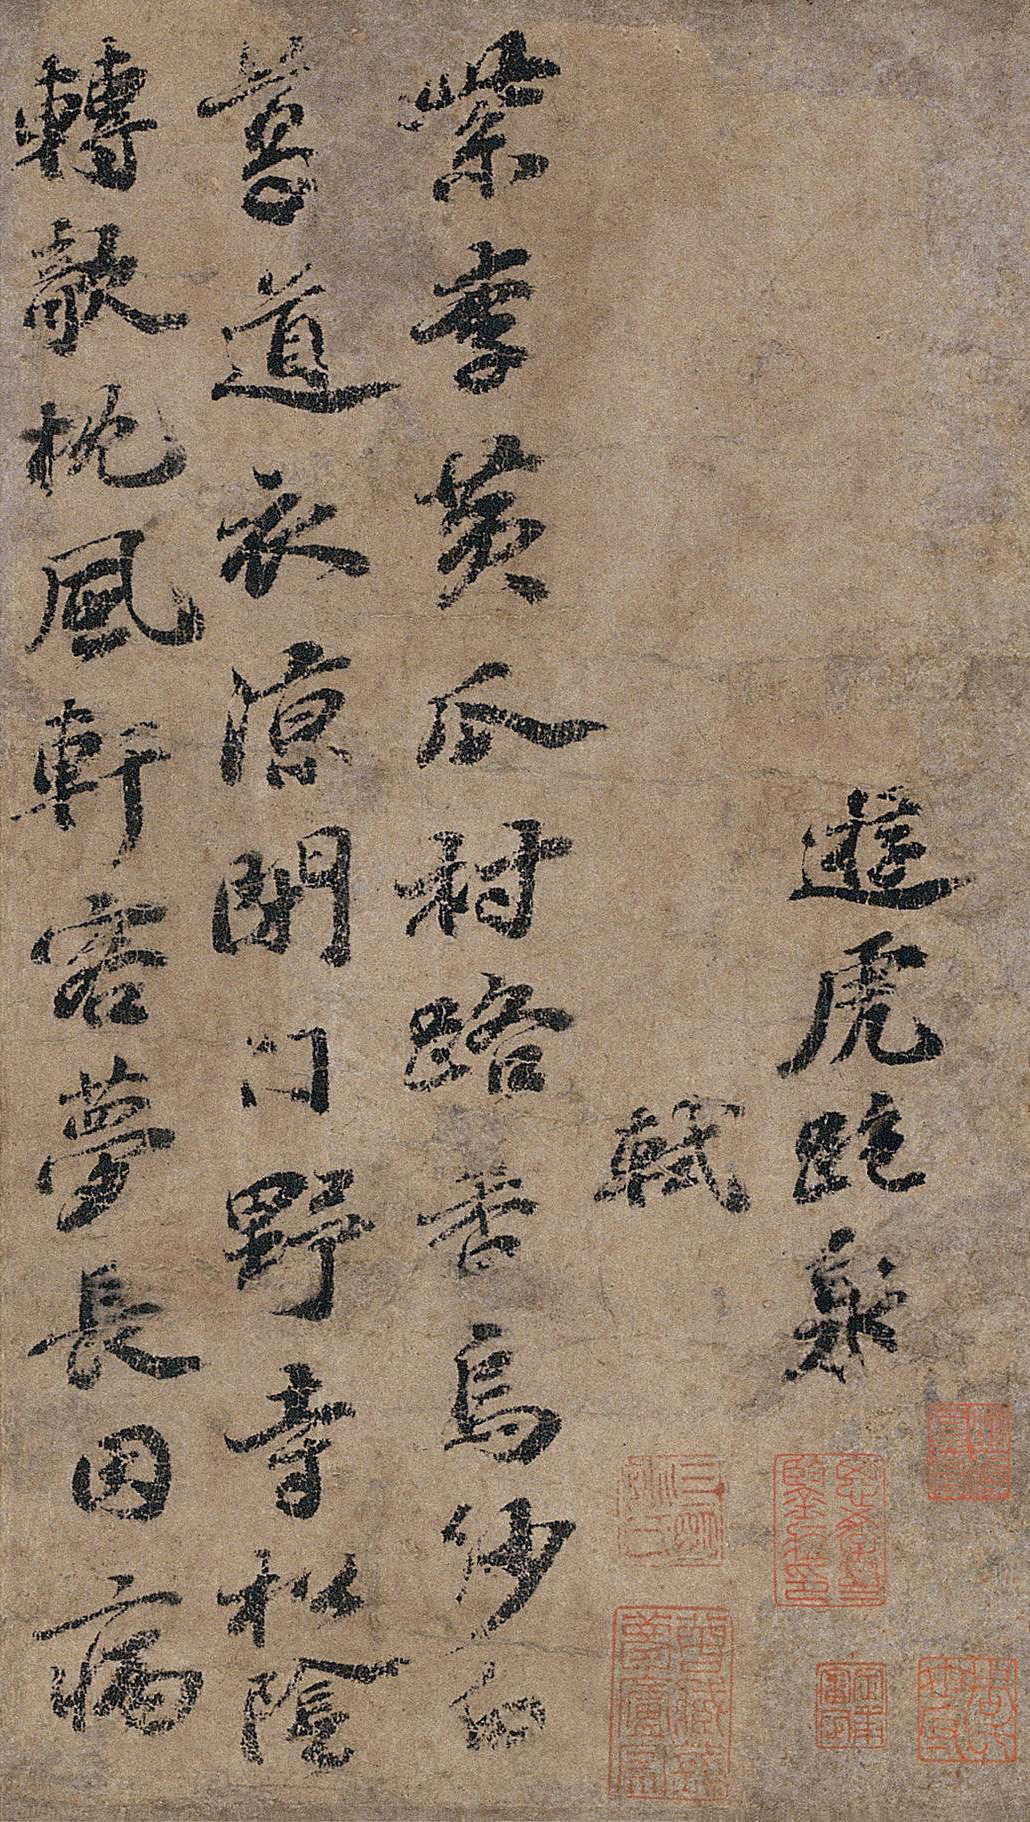 遊虎跑泉
軾
紫李黃瓜村路香烏紗白
葛道衣涼閉門野寺松陰
轉欹枕風軒客夢長因病